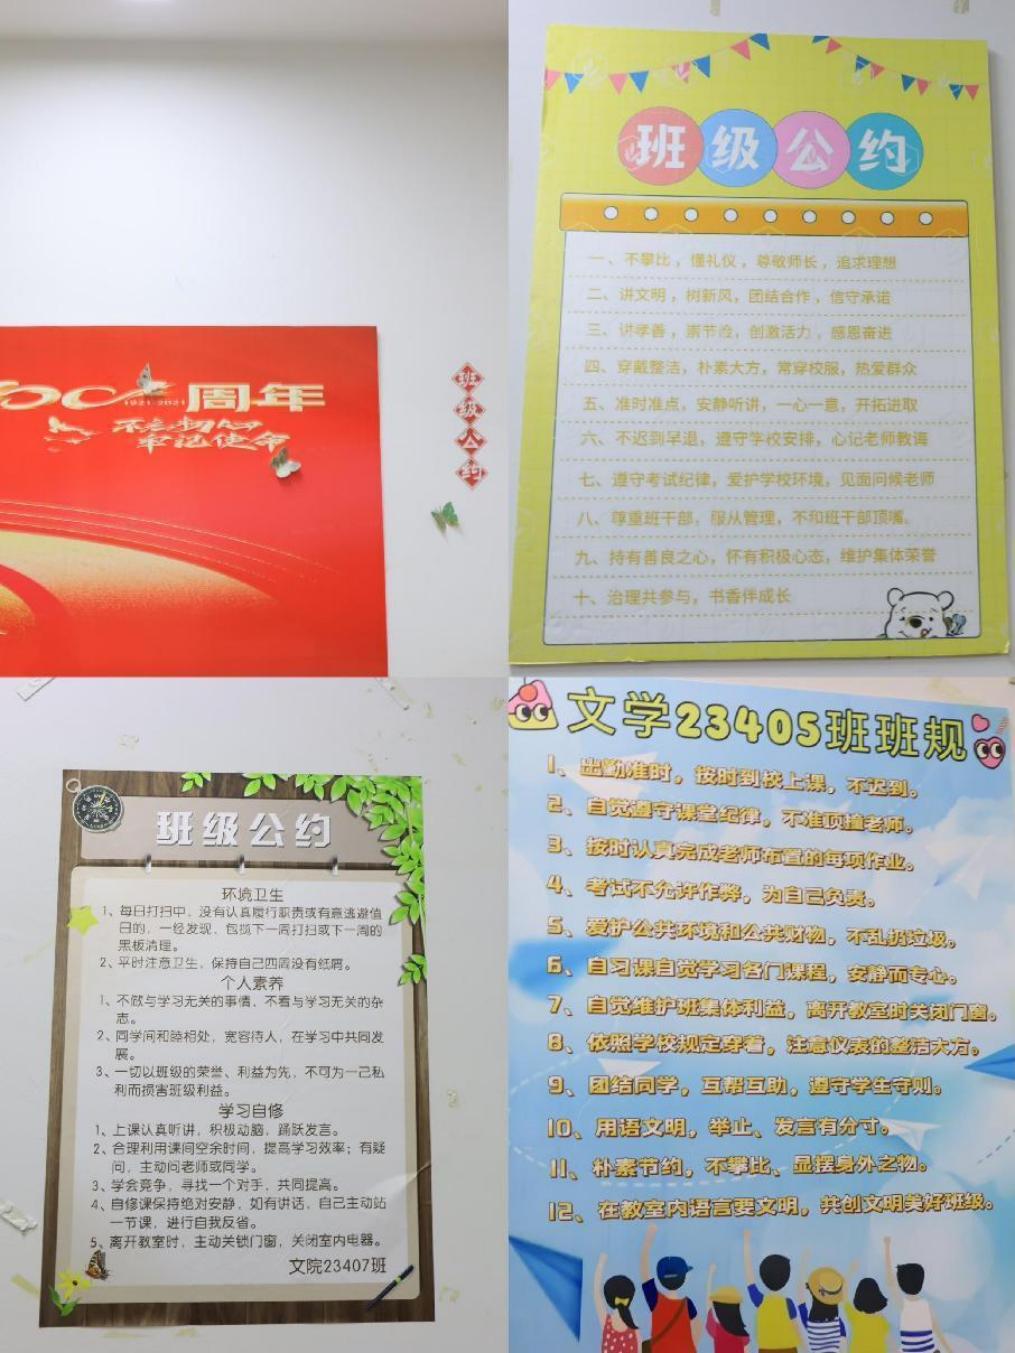 100周年
1921-2021
不忘初心
牢记使命
班
级
公
约
班级公约
一、不攀比，懂礼仪，尊敬师长，追求理想
二、讲文明，树新风，团结合作，信守承诺
三、讲孝善，崇节俭，创激活力，感恩奋进
四、穿戴整洁，朴素大方，常穿校服，热爱群众
五、准时准点，安静听讲，一心一意，开拓进取
六、不迟到早退，遵守学校安排，心记老师教诲
七、遵守考试纪律，爱护学校环境，见面问候老师
八、尊重班干部，服从管理，不和班干部顶嘴。
九、持有善良之心，怀有积极心态，维护集体荣誉
十、治理共参与，书香伴成长
班级公约
环境卫生
1、每日打扫中，没有认真履行职责或有意逃避值
日的，一经发现，包揽下一周打扫或下一周的
黑板清理。
2、平时注意卫生，保持自己四周没有纸屑。
个人素养
1、不做与学习无关的事情，不看与学习无关的杂
志。
2、同学间和睦相处，宽容待人，在学习中共同发
展。
3、一切以班级的荣誉、利益为先，不可为一己私
利而损害班级利益。
学习自修
1、上课认真听讲，积极动脑，踊跃发言。
2、合理利用课间空余时间，提高学习效率；有疑
问，主动问老师或同学。
3、学会竞争，寻找一个对手，共同提高。
4、自修课保持绝对安静，如有讲话，自己主动站
一节课，进行自我反省。
5、离开教室时，主动关锁门窗，关闭室内电器。
文院23407班
文学23405班班规
1、出勤准时，按时到校上课，不迟到。
2、自觉遵守课堂纪律，不准顶撞老师。
3、按时认真完成老师布置的每项作业。
4、考试不允许作弊，为自己负责。
5、爱护公共环境和公共财物，不乱扔垃圾。
6、自习课自觉学习各门课程，安静而专心。
7、自觉维护班集体利益，离开教室时关闭门窗。
8、依照学校规定穿着，注意仪表的整洁大方。
9、团结同学，互帮互助，遵守学生守则。
10、用语文明，举止、发言有分寸。
11、朴素节约，不攀比、显摆身外之物。
12、在教室内语言要文明，共创文明美好班级。